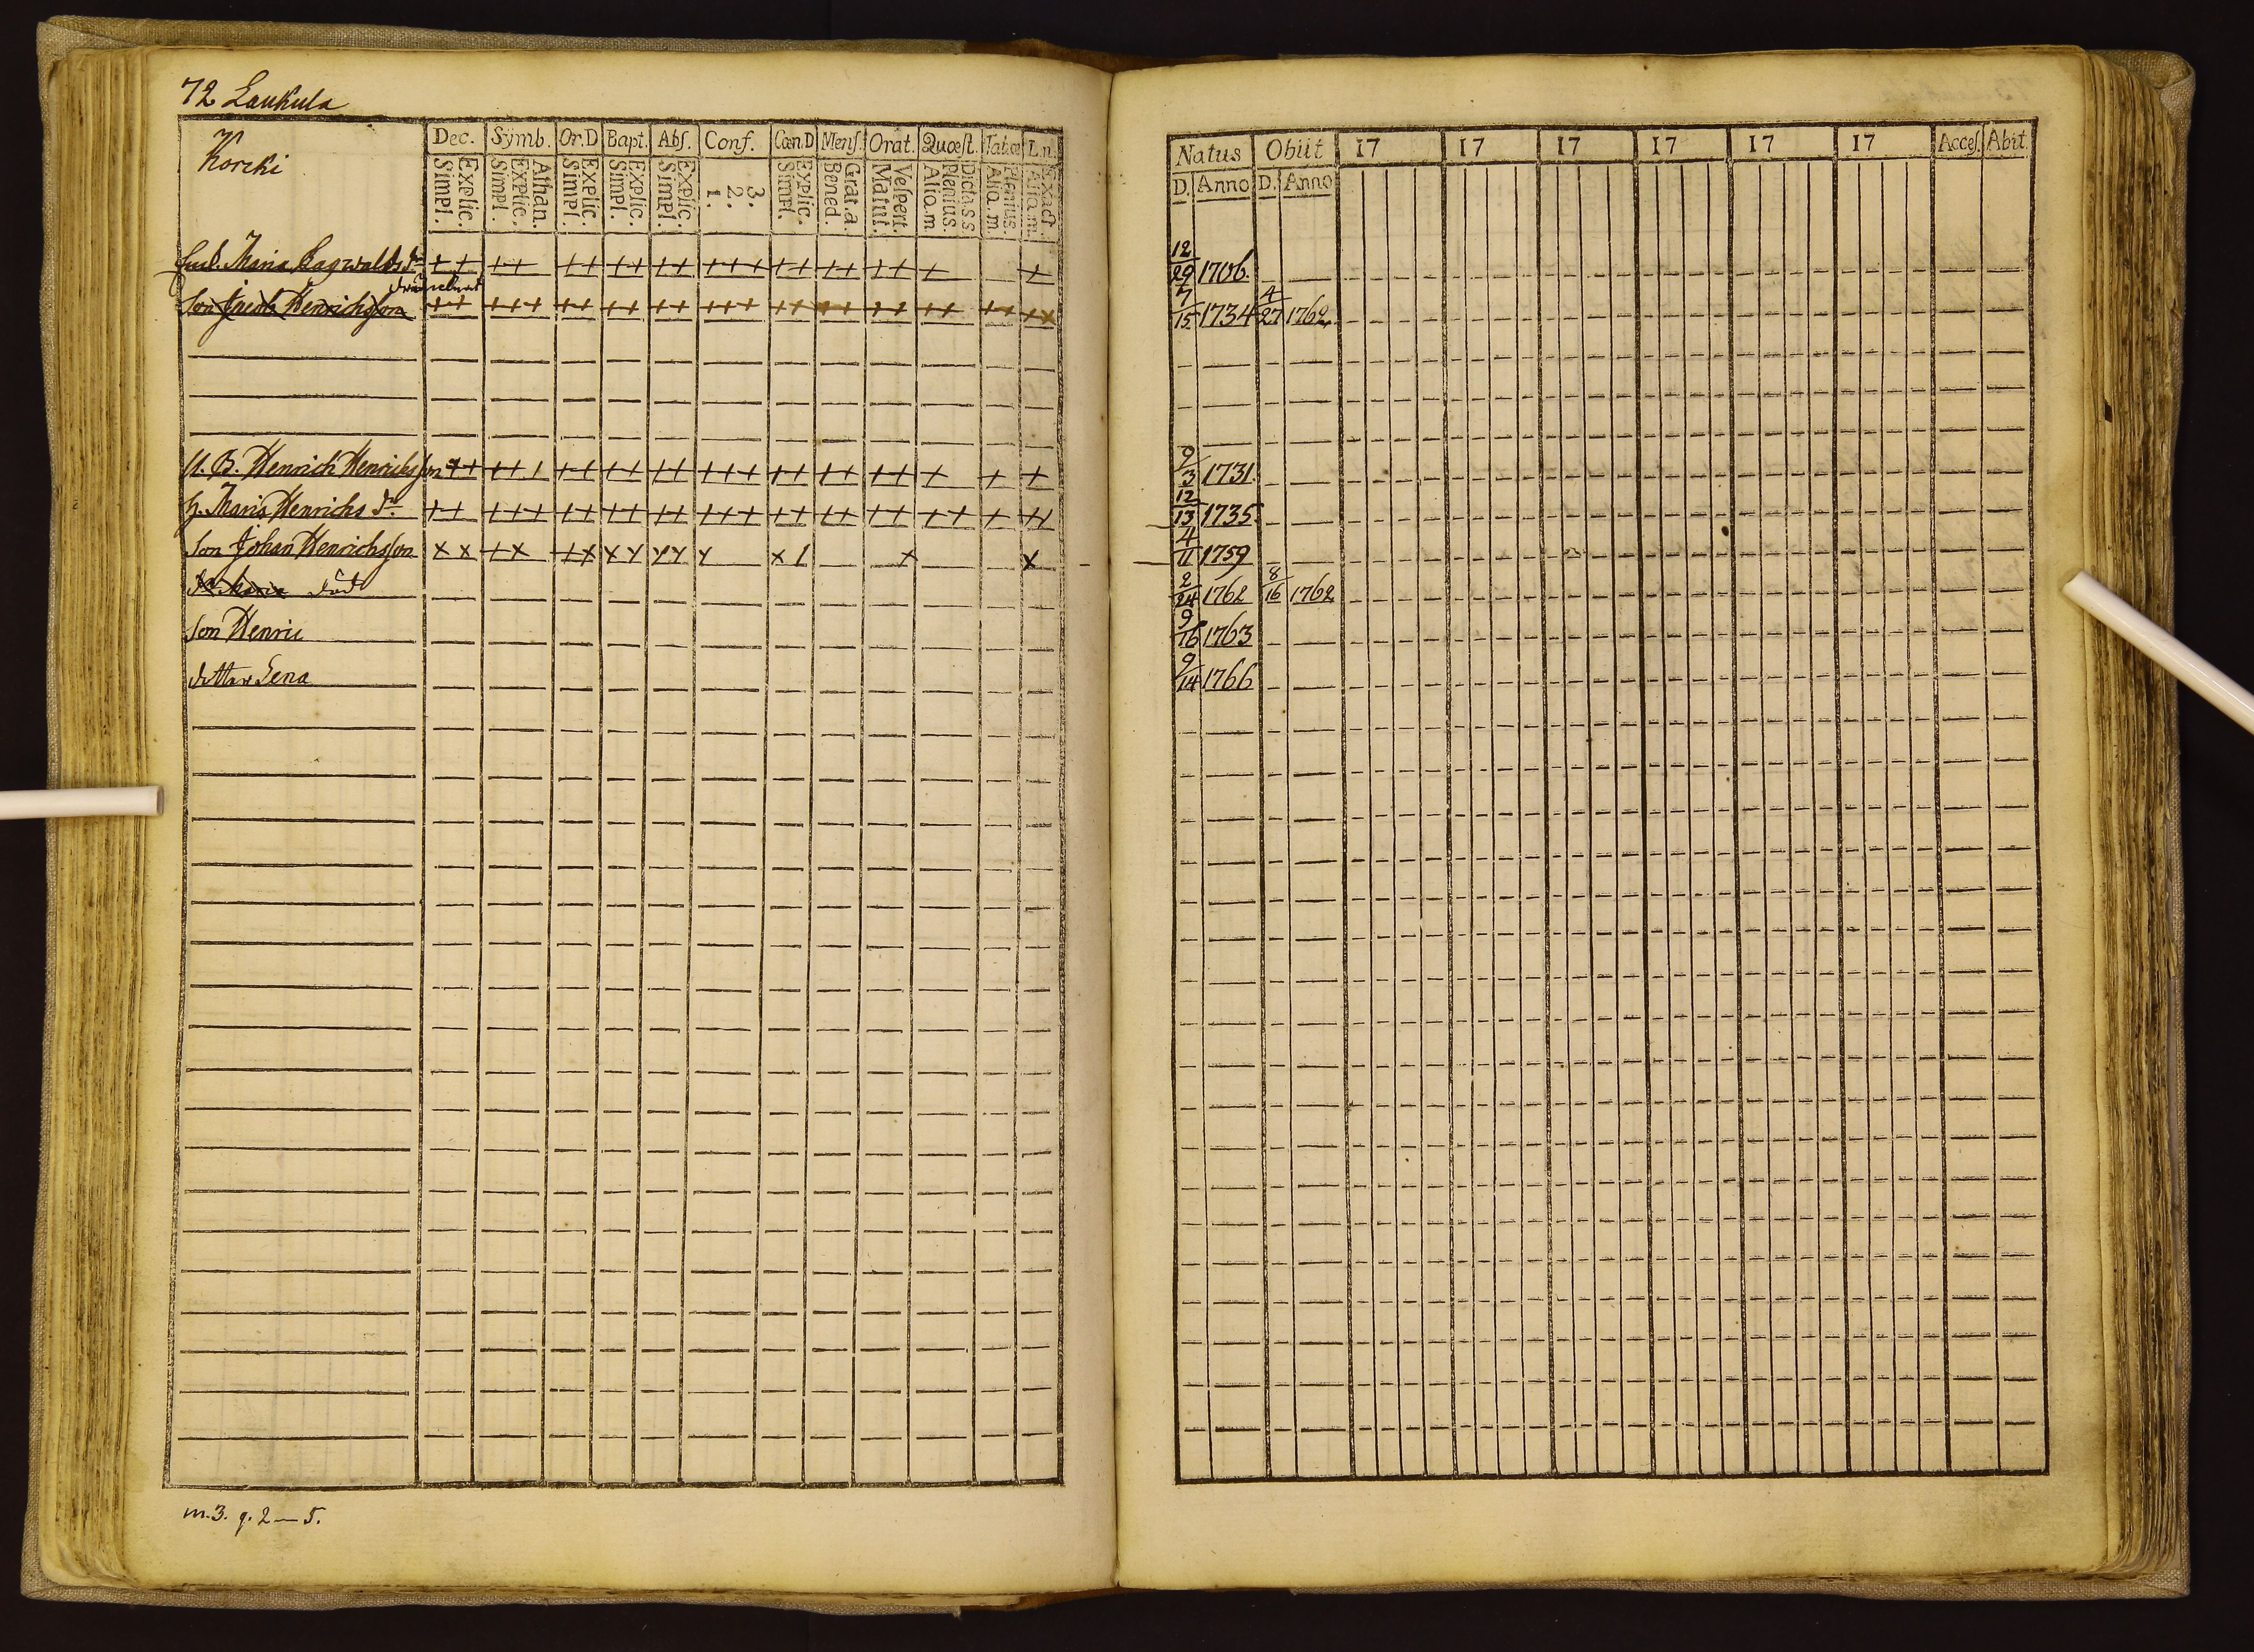 72 Laukula
Korcki
Dec. Symb. Or.D Bapt. Abs. Conf. Cœn.D Mens. Orat. Quœst. Tab.œ L.n.
Simpl. Explic. Simpl. Explic. Athan. Simpl. Explic. Simpl. Explic. Simpl. Explic. 1. 2. 3. Simpl. Explic. Bened. Grat.a. Matut. Vespert. Aliq.m Plenius. Dicta.s.s Aliq.m. Plenius. Aliq.m. Exact.
Natus Obiit 17 17 17 17 17 17 Acces. Abit.
D. Anno D. Anno
Maria Ragwalds dr 12/29 1706
drunchnat
Son Jacob Henrichsson 7/15 1734 4/27 1762
U. B. Henrich Henrichsson 9/3 1731
H. Maria Henrichs dr. 12/13 1735
Son Johan Henrichsson 4/11 1759
dr. Maria död 2/24 1762 8/16 1762
Son Henric 9/16 1763
dotter Lena 9/14 1766
m. 3. q. 2 — 5.